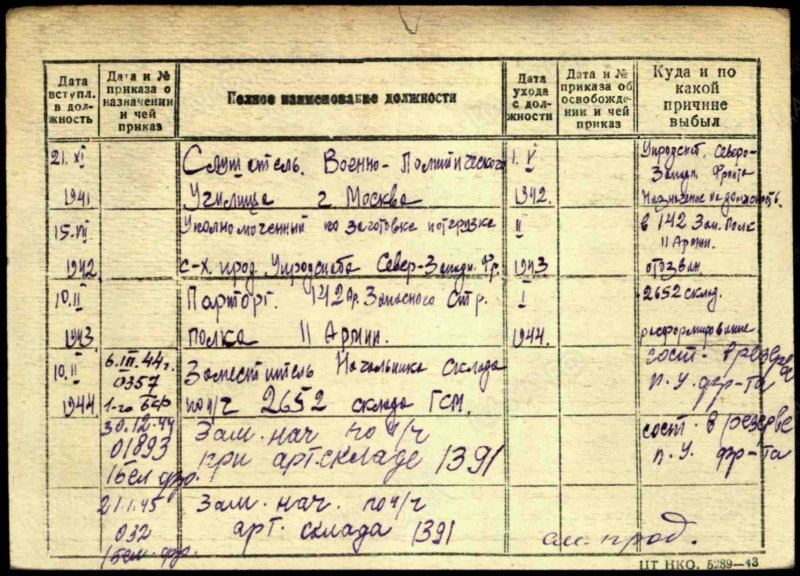 Дата вступл. в должность
Дата и № приказа о назначении и чей приказ
Полное наименование должности
Дата ухода с должности
Дата и № приказа об освобождении и чей приказ
Куда и по какой причине выбыл
21. XI
1941
Слушатель. Военно-Политического
Училища г Москва
1. V
1942.
Назначение на должность.
1942
Уполномоченный по заготовке и отгрузке
с-х. прод.
II
1943
в 142 Зап. Полк
11 Армии.
отозван
10. II
1943
Парторг. 142 Ар. Запасного Стр.
полка 11 Армии.
I
1944.
2652 склад.
расформирование
10. II
1944
6. III. 44 г.
0357
1-го БФ
Заместитель Начальника склада
по п/ч 2652 склада ГСМ.
сост. в резерве
П. У. фр-та
30.12.44
01893
1 Бел фр.
Зам. нач. по п/ч
при арт. складе 1391
сост. в резерве
П. У. фр-та
21.1.45
032
1 бел. фр.
Зам. нач. по п/ч
арт. склада 1391
см. прод.
ЦТ НКО. 5289—43